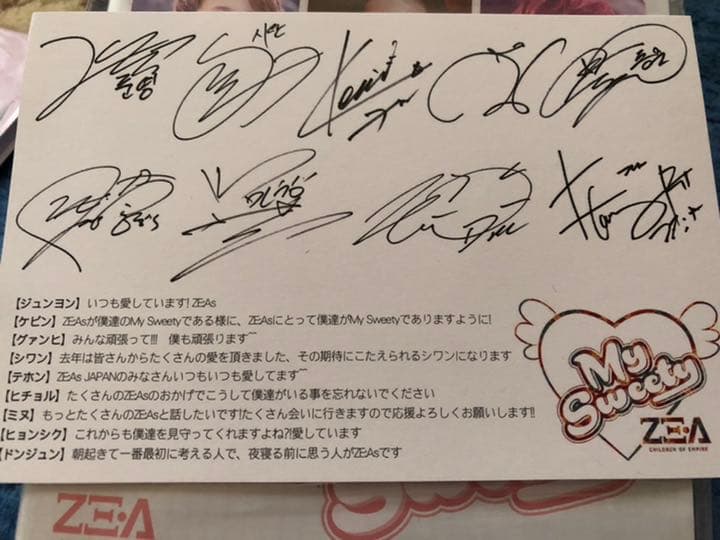 시완
Kevin
【ジュンヨン】いつも愛しています! ZE:As
【ケビン】ZE:Asが僕達のMy Sweetyである様に、ZE:Asにとって僕達がMy Sweetyでありますように!
【グァンヒ】みんな頑張って!!! 僕も頑張ります^^
【シワン】去年は皆さんからたくさんの愛を頂きました、その期待にこたえられるシワンになります
【テホン】ZE:As JAPANのみなさんいつもいつも愛してます^^
【ヒチョル】たくさんのZE:Asのおかげでこうして僕達がいる事を忘れないでください
【ミヌ】もっとたくさんのZE:Asと話したいです!たくさん会いに行きますので応援よろしくお願いします!!
【ヒョンシク】これからも僕達を見守ってくれますよね?!愛しています
【ドンジュン】朝起きて一番最初に考える人で、夜寝る前に思う人がZE:Asです
My
Sweety
ZE:A
CHILDREN OF EMPIRE
ZE:A
Sweety